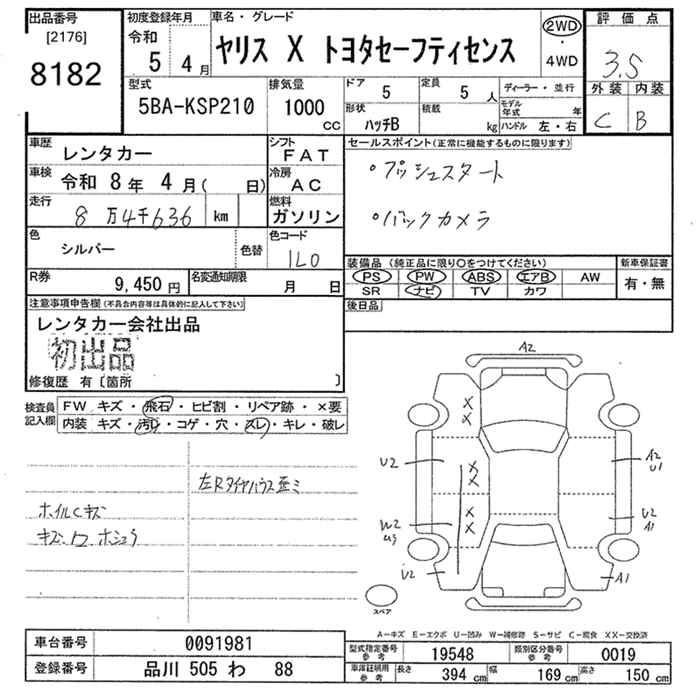 出品番号
[2176]
8182
初度登録年月
令和
5年 4月
車名・グレード
ヤリス X トヨタセーフティセンス
2WD
・
4WD
評価点
3.5
外装 内装
C B
型式
5BA-KSP210
排気量
1000
CC
ドア 5
定員 5 人
形状 ハッチB
積載 kg
ディーラー・並行
モデル年式 年
ハンドル 左・右
車歴
レンタカー
シフト
FAT
車検
令和 8年 4月( 日)
冷房
AC
走行
8万4千636 km
燃料
ガソリン
色
シルバー
色替
色コード
1L0
R券
9,450円
名変通知期限
月 日
セールスポイント(正常に機能するものに限ります)
・プッシュスタート
・バックカメラ
装備品(純正品に限り〇をつけてください)
PS PW ABS エアB AW
SR ナビ TV カワ
新車保証書
有・無
後日品
注意事項申告欄(不具合内容等は具体的に記入して下さい)
レンタカー会社出品
初出品
修復歴 有〔箇所 〕
検査員記入欄
FW キズ・飛石・ヒビ割・リペア跡・×要
内装 キズ・汚レ・コゲ・穴・ズレ・キレ・破レ
左Rタイヤハウス歪ミ
ホイルCキズ
A2
X
X
U2
X
X
X
X
W2
U2
A2
U1
U2
A1
A1
スペア
A-キズ E-エクボ U-凹み W-補修跡 S-サビ C-腐食 XX-交換済
車台番号
0091981
登録番号
品川 505 わ 88
型式指定番号
参考
19548
類別区分番号
参考
0019
車庫証明用
参考
長さ 394 cm
幅 169 cm
高さ 150 cm